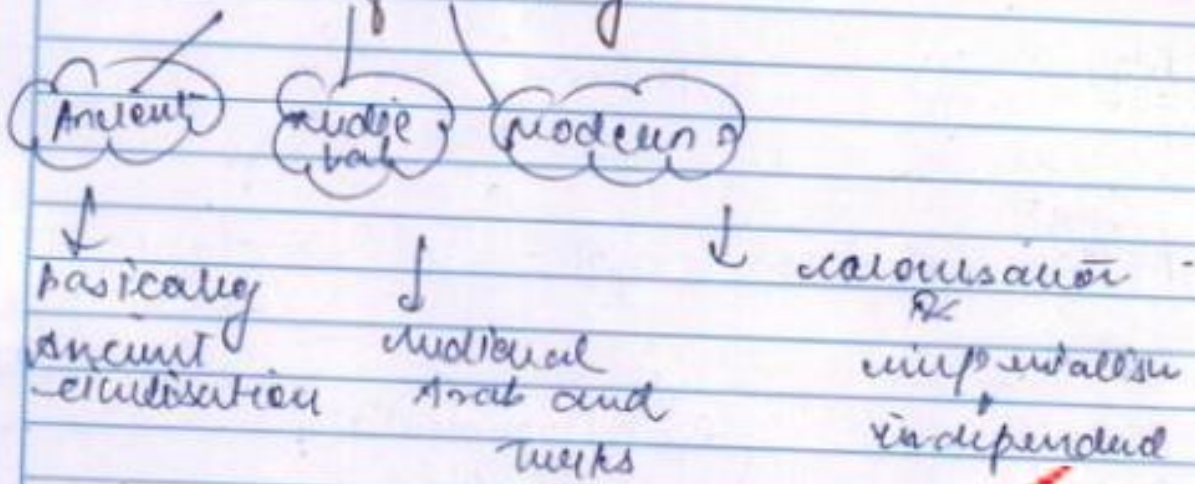 Ancient
medie
val
modern :
basically
Ancient
civilisation
medieval
Arab and
Turks
colonisation -
&
imperialism
independed